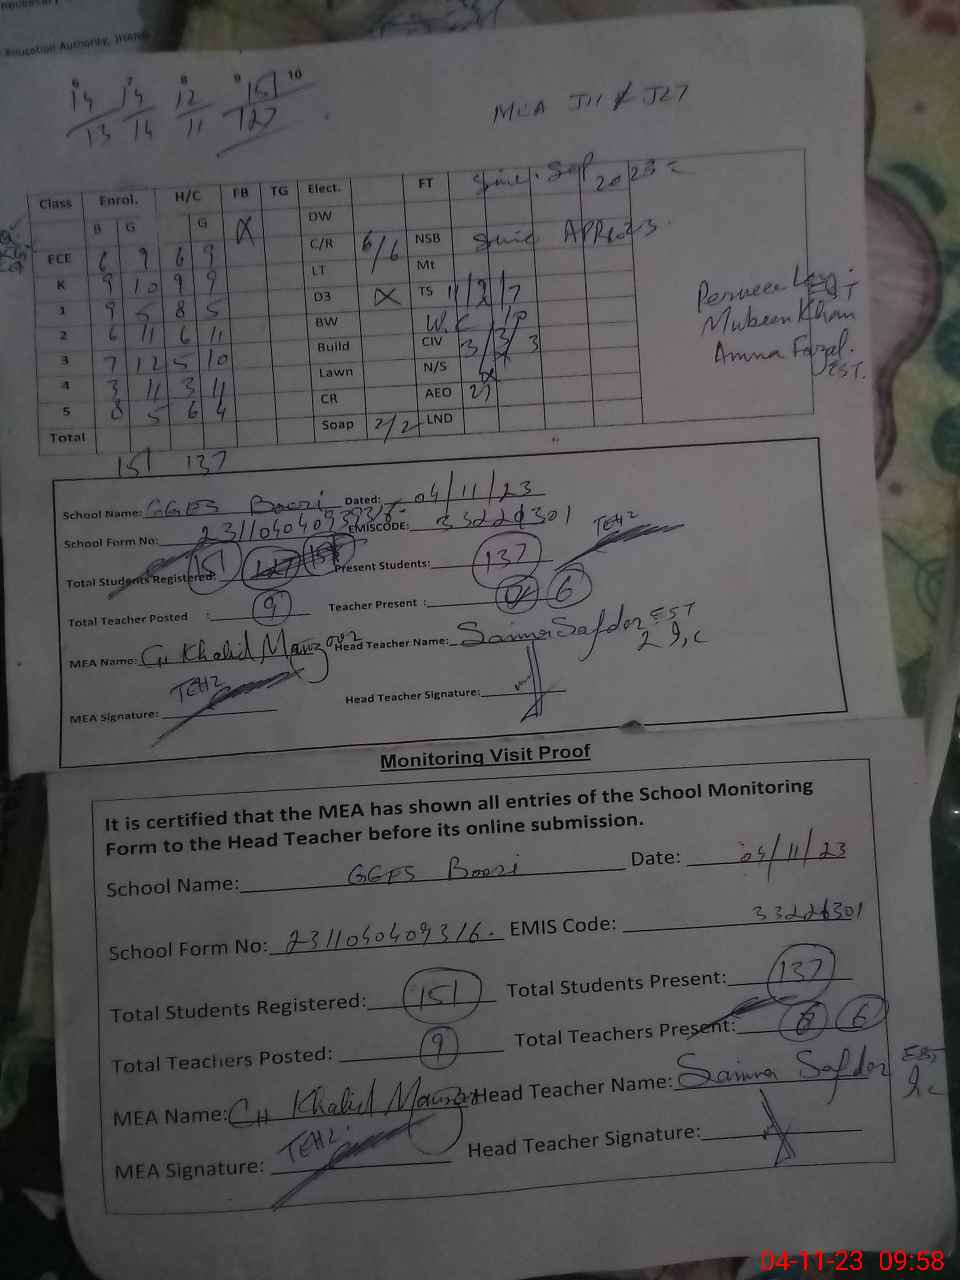 necessary
Education Authority, JHANG
6 7 8 9 10
14 14 12 151
13 14 11 127
MEA J11 & J27
Class Enrol. H/C FB TG Elect. FT Since Sep 2023
B G G X DW
ECE 6 9 6 9 C/R 6/6 NSB Since APR 2023
K 9 10 9 9 LT Mt
1 9 5 8 5 D3 X TS 11/2/7
2 6 11 6 11 BW W.C
3 7 12 5 10 Build CIV 3/3 3
4 3 11 3 11 Lawn N/S X
5 8 5 6 4 CR AEO 27
Total Soap 2/2 LND
Perveen EST
Mubeen Khan
Amna Fazal.
EST.
151 137
School Name: GGES Boori Dated: 04/11/23
School Form No: EMISCODE:
TEH2
Total Students Registered: 151 Present Students: 137
Total Teacher Posted : 9 Teacher Present : 6
MEA Name: CH Khalid Manzoor Head Teacher Name: Saima Safdar EST
TEH2
MEA Signature: Head Teacher Signature:
Monitoring Visit Proof
It is certified that the MEA has shown all entries of the School Monitoring
Form to the Head Teacher before its online submission.
School Name: GGES Boori Date: 04/11/23
School Form No: 2311040409316. EMIS Code: 33226301
Total Students Registered: 151 Total Students Present: 137
Total Teachers Posted: 9 Total Teachers Present: 6
MEA Name: CH Khalid Manzoor Head Teacher Name: Saima Safdar EST
TEH2
MEA Signature: Head Teacher Signature:
04-11-23 09:58